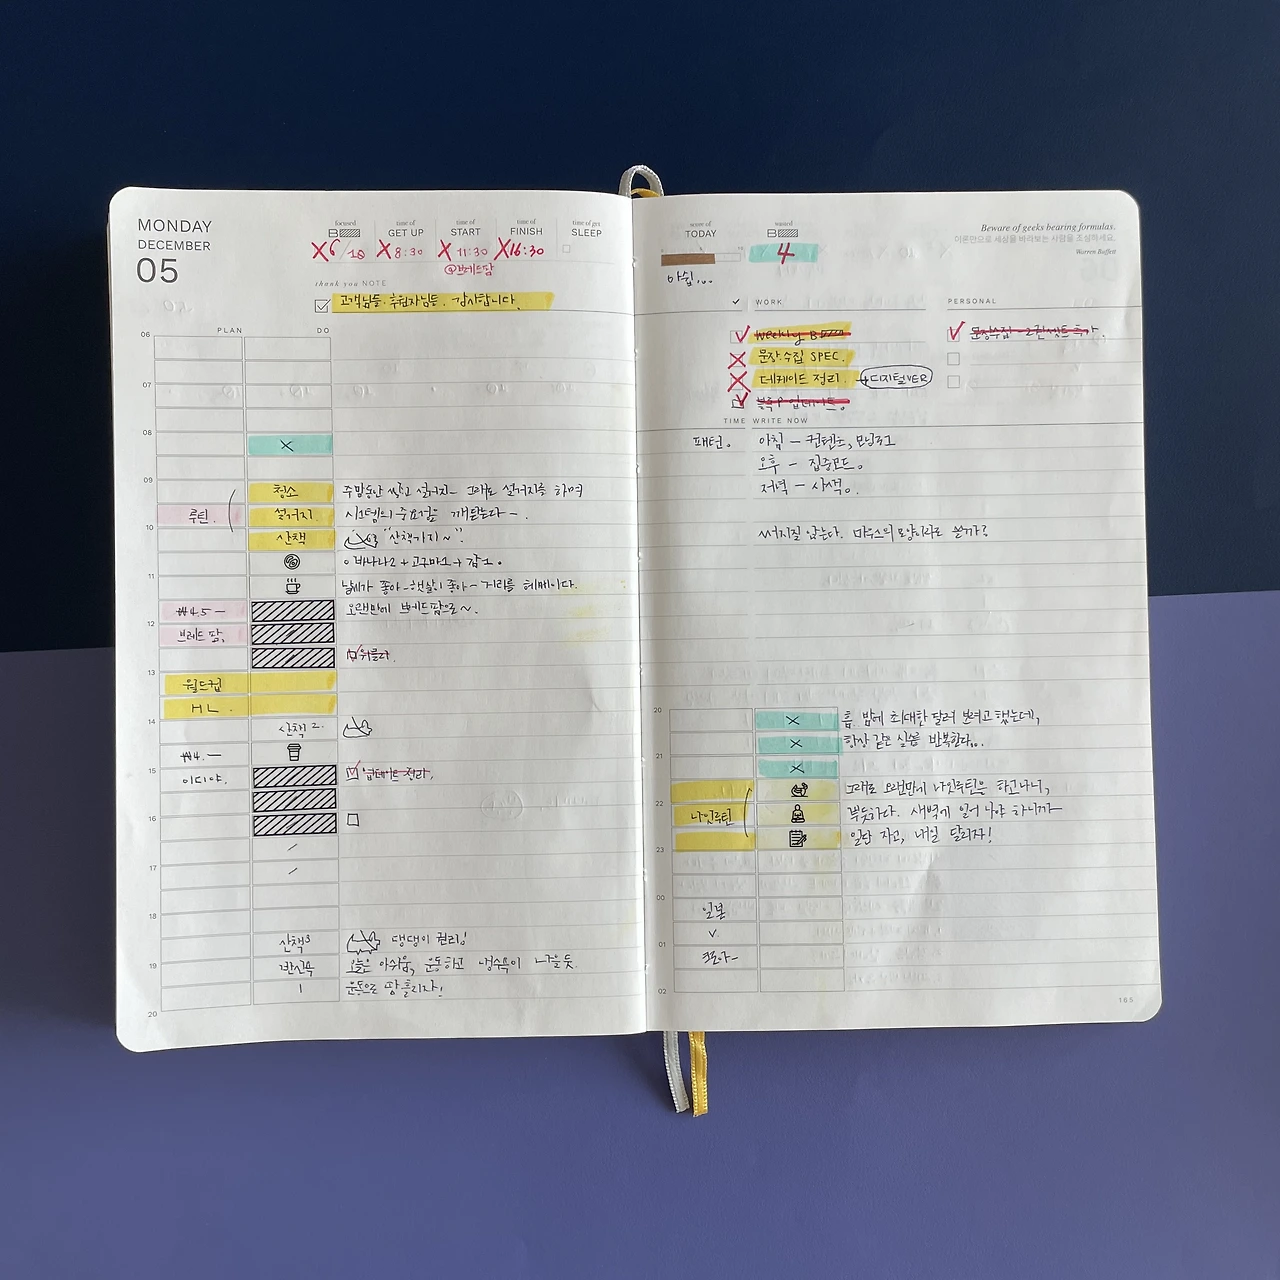 MONDAY
DECEMBER
05
focused
B
X6/10
time of
GET UP
X 8:30
time of
START
X 11:30
@브레드팜
time of
FINISH
X 16:30
time of get
SLEEP
thank you NOTE
고객님들, 후원자님들, 감사합니다.
PLAN DO
06
07
08
X
09
청소 주말동안 쌓인 설거지- 그래도 설거지를 하며
루틴. 설거지 시스템의 중요성을 깨닫는다-.
10
산책 "산책가지~".
바나나2 + 고구마1 + 감1.
11
날씨가 좋아-햇살이 좋아- 거리를 헤메이다.
₩4.5- 오랜만에 브레드팜으로~.
12
브레드팜.
위클리.
13
월드컵
HL.
14
산책 2
₩4.-
15
이디야. 업데이트 정리.
16
17
18
산책3 댕댕이 런리!
19
반신욕 오늘은 아쉬움, 운동하고 냉수욕이 나을듯.
운동으로 땀흘리자!
20
score of
TODAY
아쉽...
wasted
B
4
Beware of geeks bearing formulas.
이론만으로 세상을 바라보는 사람을 조심하세요.
Warren Buffett
✓ WORK
Weekly B
문장수집 SPEC.
데케이드 정리. → 디지털VER
블츅P 업데이트.
PERSONAL
문장수집 - 2권 세트 추가.
TIME WRITE NOW
패턴. 아침 - 컨텐츠, 모닝로그
오후 - 집중모드.
저녁 - 사색.
써지질 않는다. 마우스의 모양이라도 쓸까?
20
X 흠. 밤에 최대한 달려 보려고 했는데,
X 항상 같은 실수를 반복한다...
21
X
그래도 오랜만에 나잇루틴을 하고나니,
22
나잇루틴 뿌듯하다. 새벽에 일어나야 하니까-
일단 자고, 내일 달리자!
23
00
일본
V.
01
크로아-
02
165